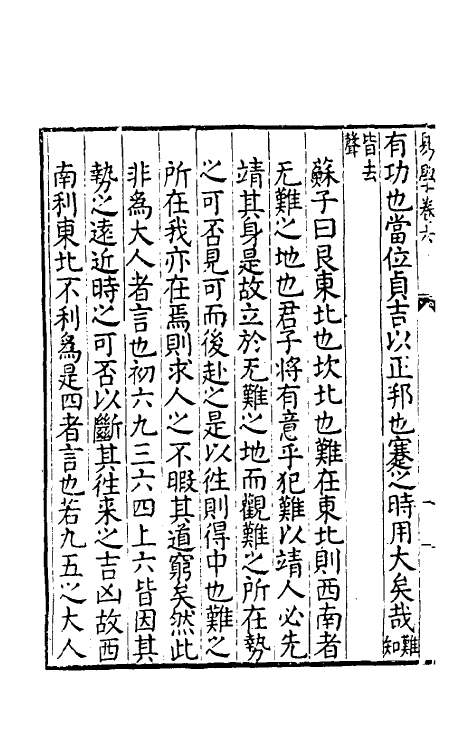 易學卷六
有功也當位貞吉以正邦也蹇之時用大矣哉難知
皆去聲
蘇子曰艮東北也坎北也難在東北則西南者
无難之地也君子將有意乎犯難以靖人必先
靖其身是故立於无難之地而觀難之所在勢
之可否見可而後赴之是以往則得中也難之
所在我亦在焉則求人之不暇其道窮矣然此
非為大人者言也初六九三六四上六皆因其
勢之遠近時之可否以斷其往来之吉凶故西
南利東北不利為是四者言也若九五之大人